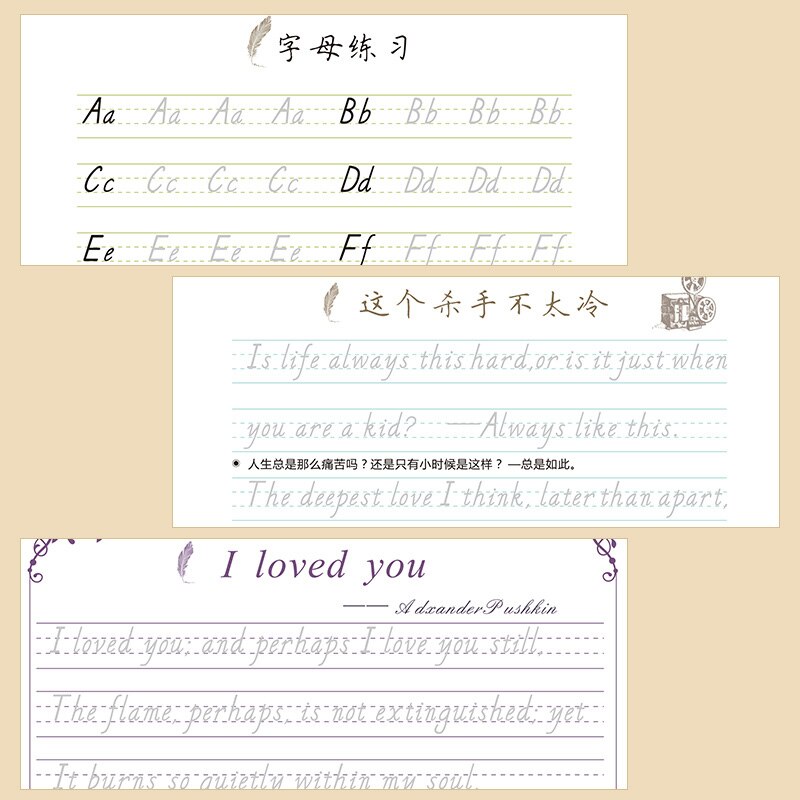 字母练习
Aa Aa Aa Aa Bb Bb Bb Bb
Cc Cc Cc Cc Dd Dd Dd Dd
Ee Ee Ee Ee Ff Ff Ff Ff
这个杀手不太冷
Is life always this hard,or is it just when
you are a kid? —Always like this.
人生总是那么痛苦吗？还是只有小时候是这样？—总是如此。
The deepest love I think, later than apart,
I loved you
—— AdxanderPushkin
I loved you; and perhaps I love you still,
The flame, perhaps, is not extinguished; yet
It burns so quietly within my soul,